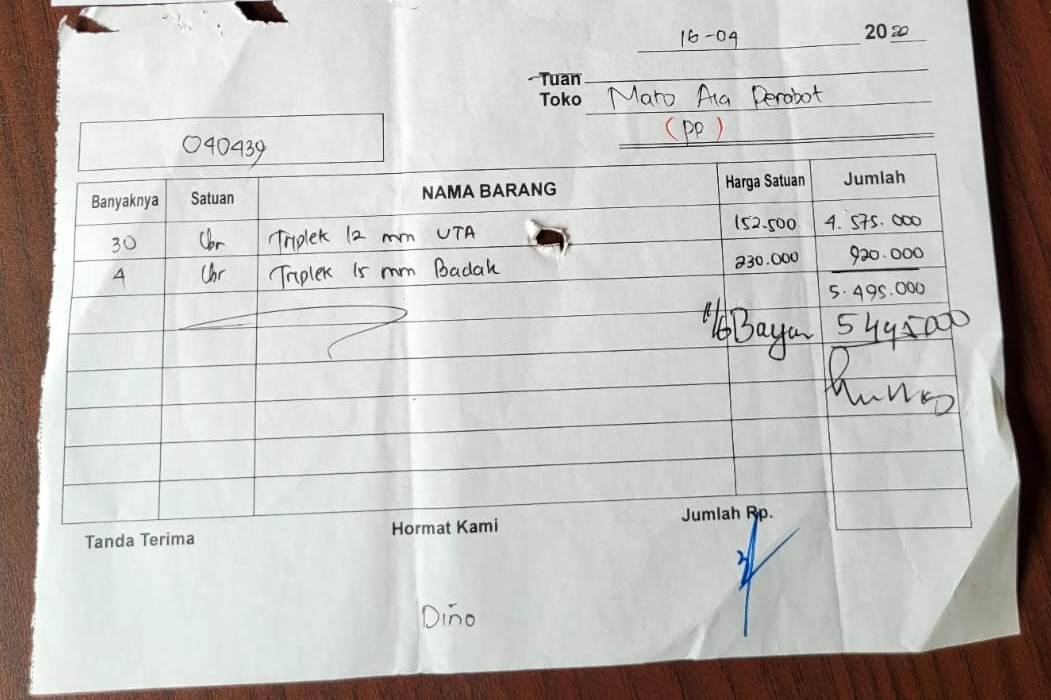 16-04 2020
Tuan
Toko Maro Ara Perobot
(PP)
040439
Banyaknya Satuan NAMA BARANG Harga Satuan Jumlah
30 Lbr Triplek 12 mm UTA 152.500 4.575.000
4 Lbr Triplek 15 mm Badak 230.000 920.000
5.495.000
Bayar 5495000
Tanda Terima Hormat Kami Jumlah Rp.
Dino